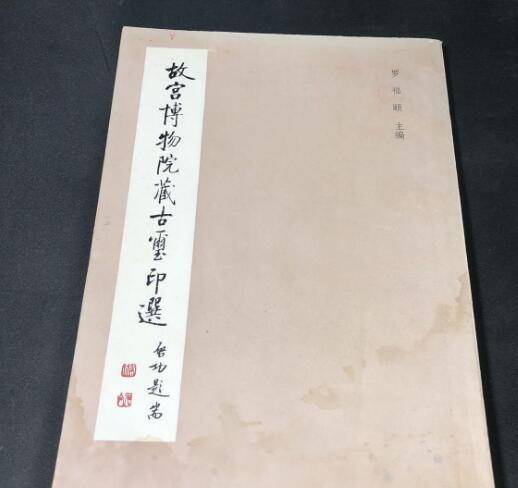 故宫博物院藏古璽印選
启功題耑
罗福颐 主编